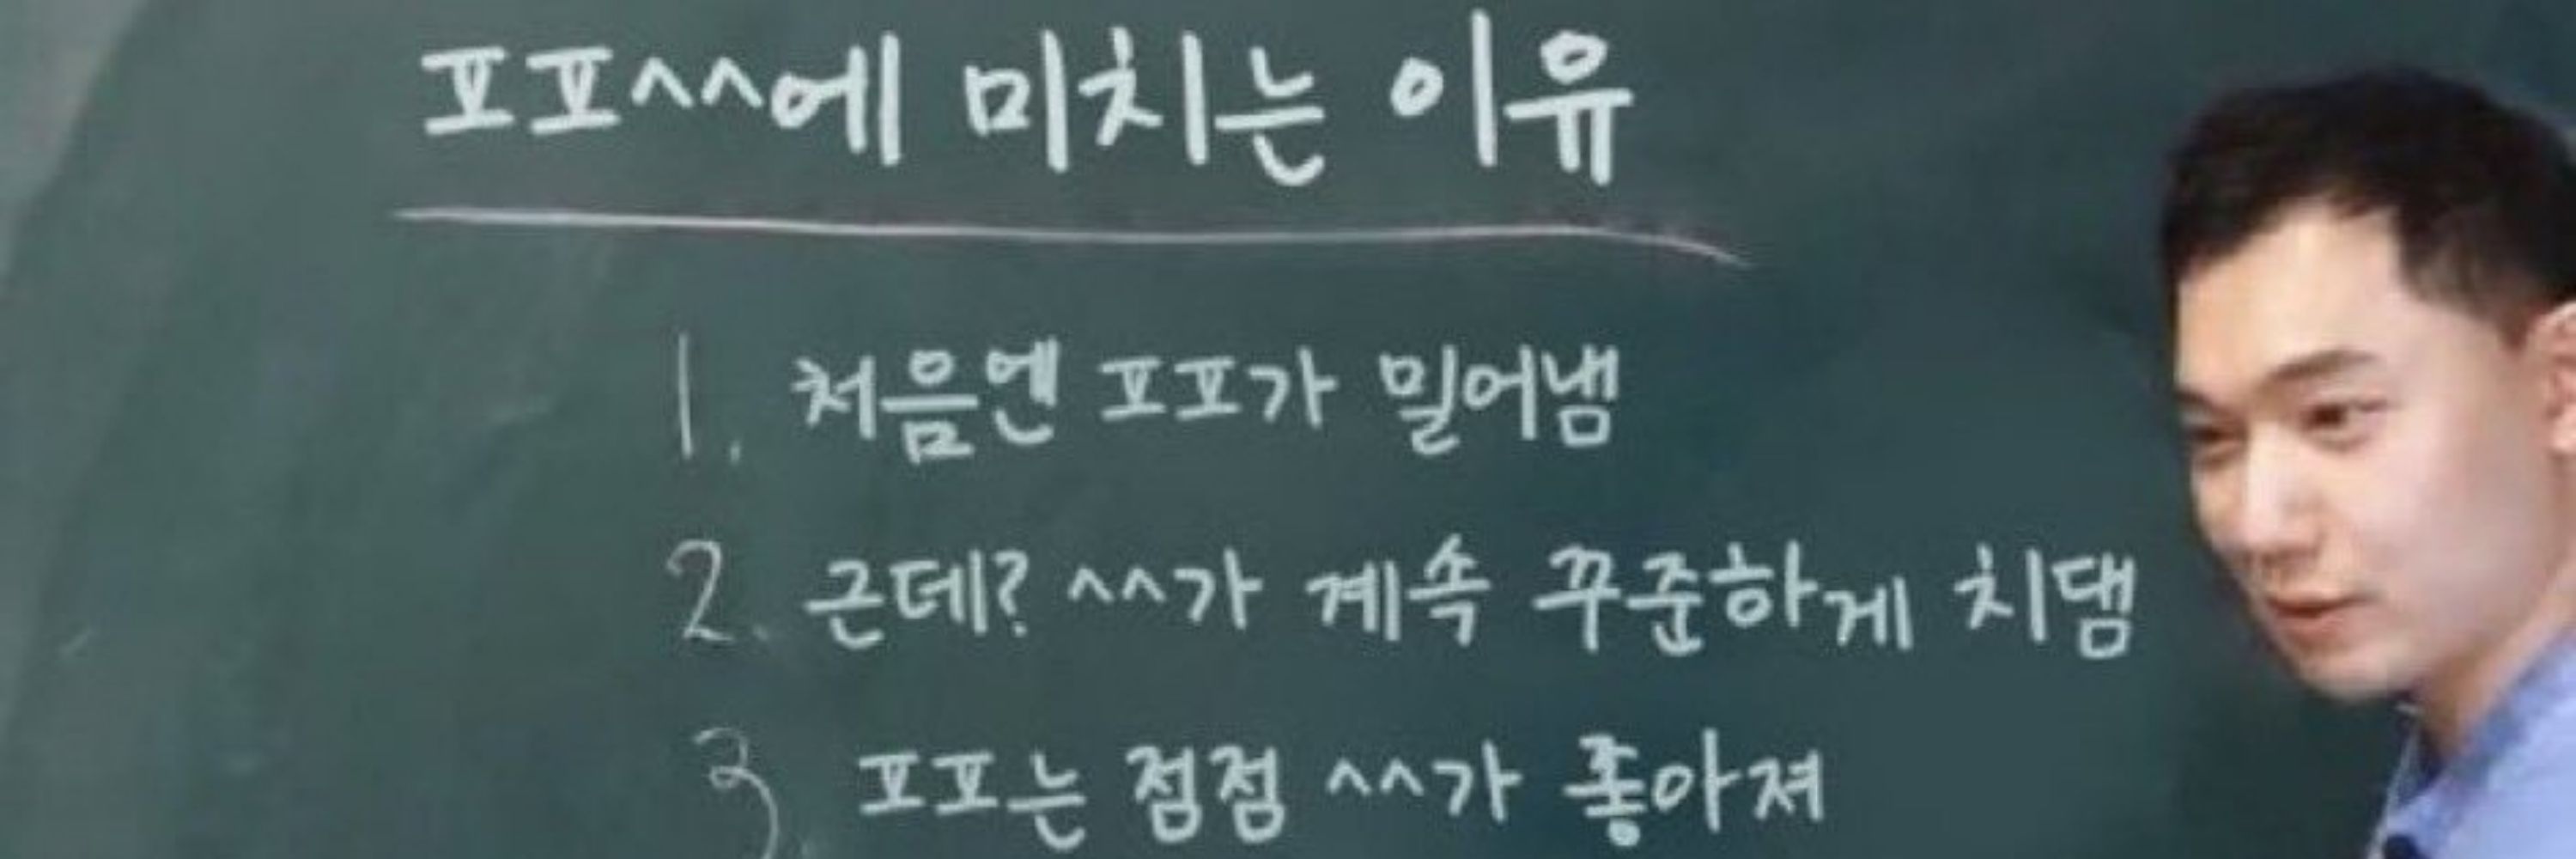 포포^^에 미치는 이유
1. 처음엔 포포가 밀어냄
2. 근데? ^^가 계속 꾸준하게 치댐
3. 포포는 점점 ^^가 좋아져